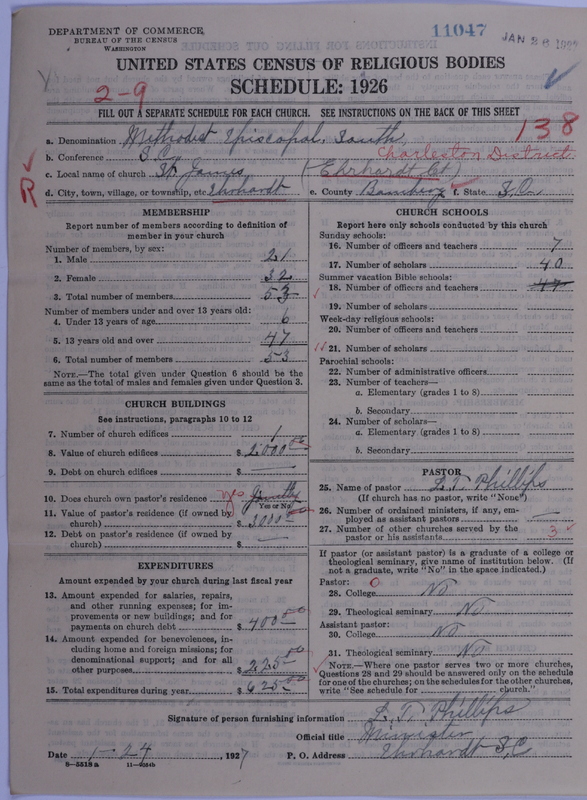 DEPARTMENT OF COMMERCE
BUREAU OF THE CENSUS
WASHINGTON
11047
JAN 26 1927
UNITED STATES CENSUS OF RELIGIOUS BODIES
2-9
SCHEDULE: 1926
FILL OUT A SEPARATE SCHEDULE FOR EACH CHURCH. SEE INSTRUCTIONS ON THE BACK OF THIS SHEET
138
a. Denomination Methodist Episcopal, South
b. Conference S.C. Charleston District
c. Local name of church St James (Ehrhardt Ct)
R
d. City, town, village, or township, etc. Ehrhardt e. County Bamberg f. State S.C.
MEMBERSHIP
Report number of members according to definition of
member in your church
Number of members, by sex:
1. Male 21
2. Female 32
3. Total number of members 53
Number of members under and over 13 years old:
4. Under 13 years of age 6
5. 13 years old and over 47
6. Total number of members 53
NOTE.—The total given under Question 6 should be
same as the total of males and females given under Question 3.
CHURCH BUILDINGS
See instructions, paragraphs 10 to 12
7. Number of church edifices 1
8. Value of church edifices $ 2000.00
9. Debt on church edifices $ —
10. Does church own pastor's residence yes Jointly
Yes or No
11. Value of pastor's residence (if owned by
church) $ 3000.00
12. Debt on pastor's residence (if owned by
church) $ —
EXPENDITURES
Amount expended by your church during last fiscal year
13. Amount expended for salaries, repairs,
and other running expenses; for im-
provements or new buildings; and for
payments on church debt $ 400.00
14. Amount expended for benevolences, in-
cluding home and foreign missions; for
denominational support; and for all
other purposes $ 225.00
15. Total expenditures during year $ 625.00
CHURCH SCHOOLS
Report here only schools conducted by this church
Sunday schools:
16. Number of officers and teachers 7
17. Number of scholars 40
Summer vacation Bible schools:
18. Number of officers and teachers 47
19. Number of scholars
Week-day religious schools:
20. Number of officers and teachers
21. Number of scholars
Parochial schools:
22. Number of administrative officers
23. Number of teachers—
a. Elementary (grades 1 to 8)
b. Secondary
24. Number of scholars—
a. Elementary (grades 1 to 8)
b. Secondary
PASTOR
25. Name of pastor L. T. Phillips
(If church has no pastor, write "None")
26. Number of ordained ministers, if any, em-
ployed as assistant pastors —
27. Number of other churches served by the
pastor or his assistants 3
If pastor (or assistant pastor) is a graduate of a college or
theological seminary, give name of institution below. (If
not a graduate, write "No" in the space indicated.)
Pastor: 0
28. College No
29. Theological seminary No
Assistant pastor:
30. College No
31. Theological seminary No
NOTE.—Where one pastor serves two or more churches,
Questions 28 and 29 should be answered only on the schedule
for one of the churches; on the schedules for the other churches,
write "See schedule for church."
Signature of person furnishing information L. T. Phillips
Official title Minister
Date 1-24, 1927 P. O. Address Ehrhardt S,C
8—5518 a